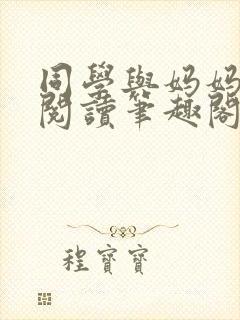 同學與媽媽
閱讀筆趣閣
程寶寶